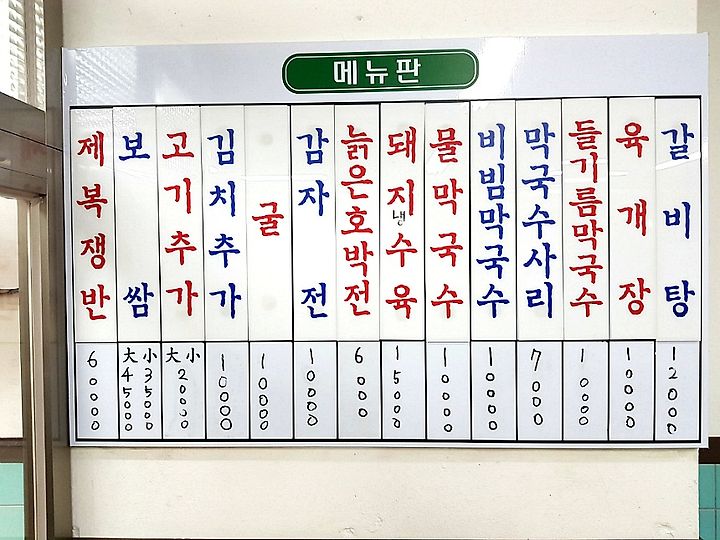 메뉴판
제복쟁반
60000
보쌈
大 45000
小 35000
고기추가
大小
20000
김치추가
10000
굴
10000
감자전
10000
늙은호박전
6000
돼지냉수육
15000
물막국수
10000
비빔막국수
10000
막국수사리
7000
들기름막국수
10000
육개장
10000
갈비탕
12000